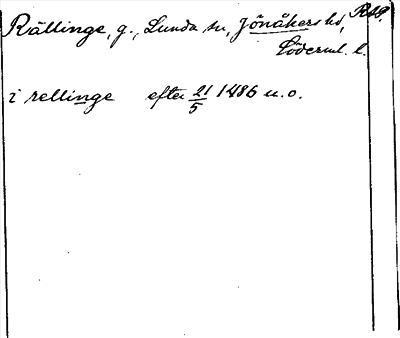 Rällinge, g., Lunda sn, Jönåkers hd,
Söderml. l.
i rellinge efter 21/5 1486 u.o.